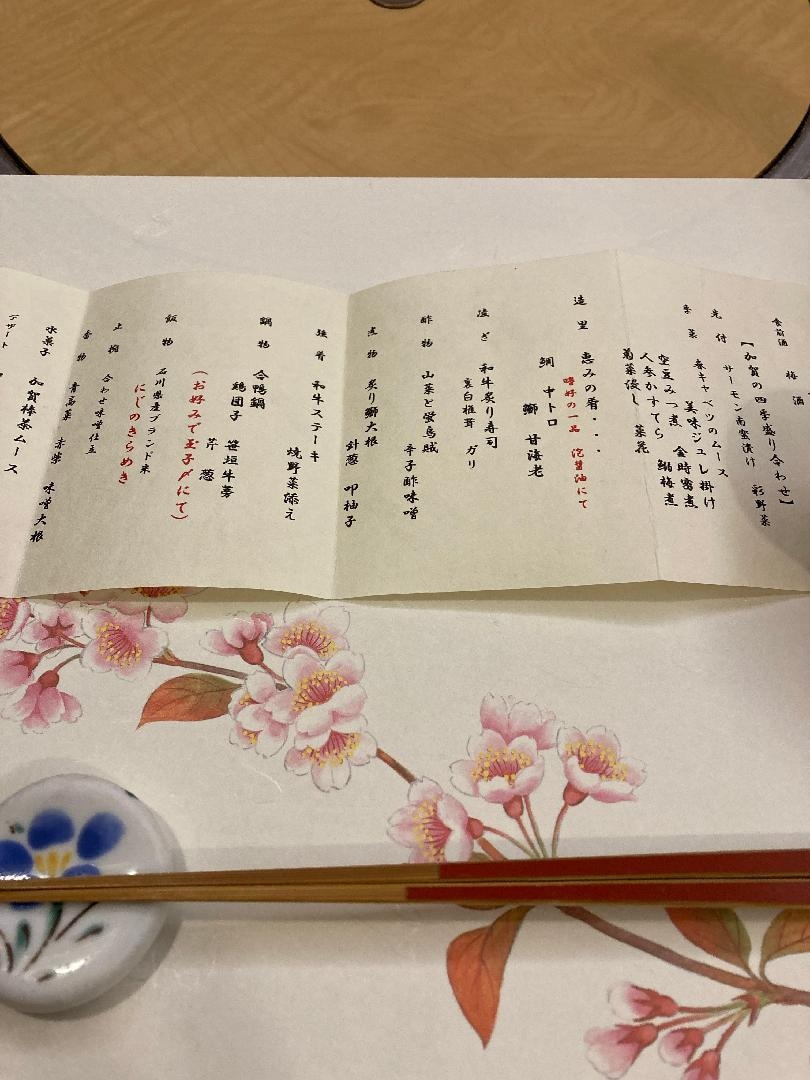 食前酒　梅酒
【加賀の四季盛り合わせ】
サーモン南蛮漬け　彩野菜
先付　春キャベツのムース
美味ジュレ掛け
季菜　空豆みつ煮　金時蜜煮
人参かすてら　鰯梅煮
菊菜浸し　菜花
造里　恵みの肴・・・
嗜好の一品　泡醤油にて
鯛　中トロ
鰤　甘海老
凌ぎ　和牛炙り寿司
裏白椎茸　ガリ
酢物　山菜と蛍烏賊
辛子酢味噌
煮物　炙り鰤大根
針葱　叩柚子
強肴　和牛ステーキ
焼野菜添え
鍋物　合鴨鍋
鶏団子　笹垣牛蒡
芹　葱
（お好みで玉子〆にて）
飯物　石川県産ブランド米
にじのきらめき
止椀　合わせ味噌仕立
香物　青高菜　赤柴　味噌大根
水菓子　加賀棒茶ムース
デザート